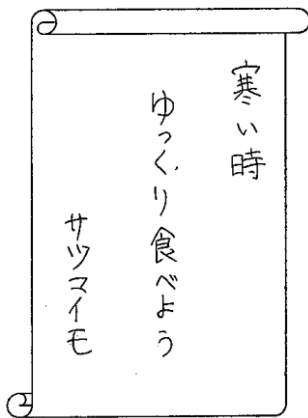 寒い時
ゆっくり食べよう
サツマイモ